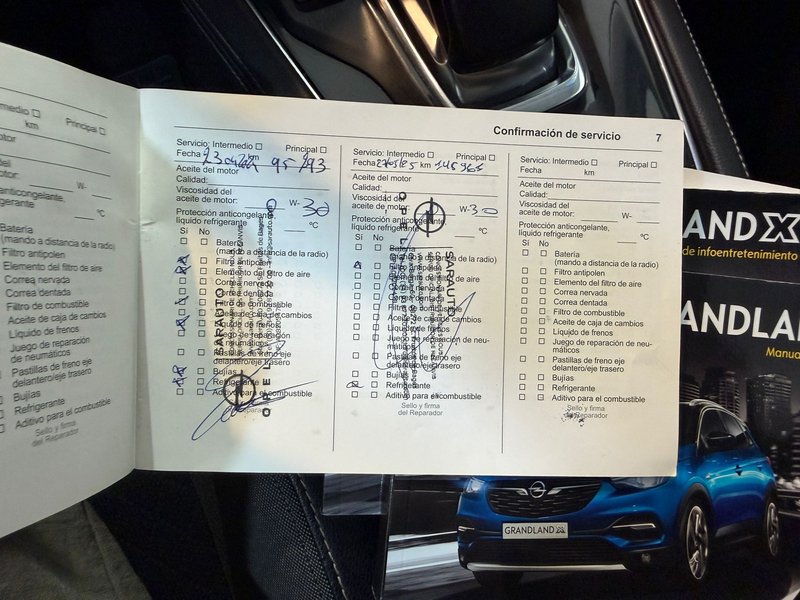 Confirmación de servicio 7
ermedio Principal
km
motor
W-
anticongelante,
refrigerante °C
Batería
(mando a distancia de la radio)
Filtro antipolen
Elemento del filtro de aire
Correa nervada
Correa dentada
Filtro de combustible
Aceite de caja de cambios
Líquido de frenos
Juego de reparación
de neumáticos
Pastillas de freno eje
delantero/eje trasero
Bujías
Refrigerante
Aditivo para el combustible
Sello y firma
del Reparador
Servicio: Intermedio Principal
Fecha km 95 293
Aceite del motor
Calidad:
Viscosidad del
aceite de motor: 0 W- 30
Protección anticongelante,
líquido refrigerante °C
Sí No
Batería
(mando a distancia de la radio)
Filtro antipolen
Elemento del filtro de aire
Correa nervada
Correa dentada
Filtro de combustible
Aceite de caja de cambios
Líquido de frenos
Juego de reparación
Pastillas de freno eje
delantero/eje trasero
Bujías
Refrigerante
Aditivo para el combustible
SARAUTO
OPEL
Servicio: Intermedio Principal
Fecha km 145 965
Aceite del motor
Calidad:
Viscosidad del
aceite de motor: W- 30
Protección anticongelante,
líquido refrigerante °C
Sí No
Batería
(mando a distancia de la radio)
Filtro antipolen
Elemento del filtro de aire
Correa nervada
Correa dentada
Filtro de combustible
Aceite de caja de cambios
Líquido de frenos
Juego de reparación de neu-
máticos
Pastillas de freno eje
delantero/eje trasero
Bujías
Refrigerante
Aditivo para el combustible
Sello y firma
del Reparador
OPEL
SARAUTO
Servicio: Intermedio Principal
Fecha km
Aceite del motor
Calidad:
Viscosidad del
aceite de motor: W-
Protección anticongelante,
líquido refrigerante °C
Sí No
Batería
(mando a distancia de la radio)
Filtro antipolen
Elemento del filtro de aire
Correa nervada
Correa dentada
Filtro de combustible
Aceite de caja de cambios
Líquido de frenos
Juego de reparación de neu-
máticos
Pastillas de freno eje
delantero/eje trasero
Bujías
Refrigerante
Aditivo para el combustible
Sello y firma
del Reparador
AND X
de infoentretenimiento
ANDLAND
Manua
GRANDLAND X